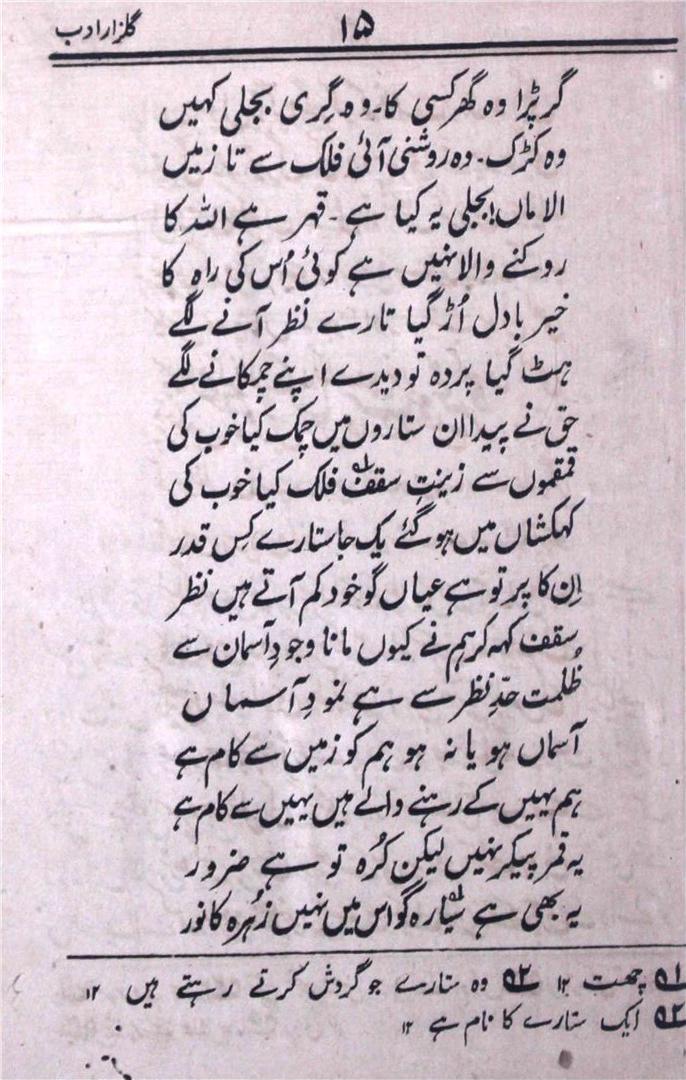 گلزار ادب
۱۵
گر پڑا وہ گھر کسی کا۔ وہ گِری بجلی کہیں
وہ کڑک۔ وہ روشنی آئی فلک سے تا زمیں
الاماں! بجلی یہ کیا ہے۔ قہر ہے اللہ کا
روکنے والا نہیں ہے کوئی اُس کی راہ کا
خیر بادل اُڑ گیا تارے نظر آنے لگے
ہٹ گیا پردہ تو دیدے اپنے چمکانے لگے
حق نے پیدا ان ستاروں میں چمک کیا خوب کی
قمقموں سے زینتِ سقف۱؎ فلک کیا خوب کی
کہکشاں میں ہو گئے یک جا ستارے کِس قدر
اِن کا پر تو ہے عیاں گو خود کم آتے ہیں نظر
سقف کہہ کر ہم نے کیوں مانا وجودِ آسمان سے
ظُلمت حدِّ نظر سے ہے نمودِ آسماں
آسماں ہو یا نہ ہو ہم کو زمیں سے کام ہے
ہم یہیں کے رہنے والے ہیں یہیں سے کام ہے
یہ قمر پیکر نہیں لیکن کُرہ تو ہے ضرور
یہ بھی ہے سیّارہ۲؎ گو اس میں نہیں زُہرہ کا نور
۱؎ چھت ۱۲ ۲؎ وہ ستارے جو گردش کرتے رہتے ہیں ۱۲
۲؎ ایک ستارے کا نام ہے ۱۲